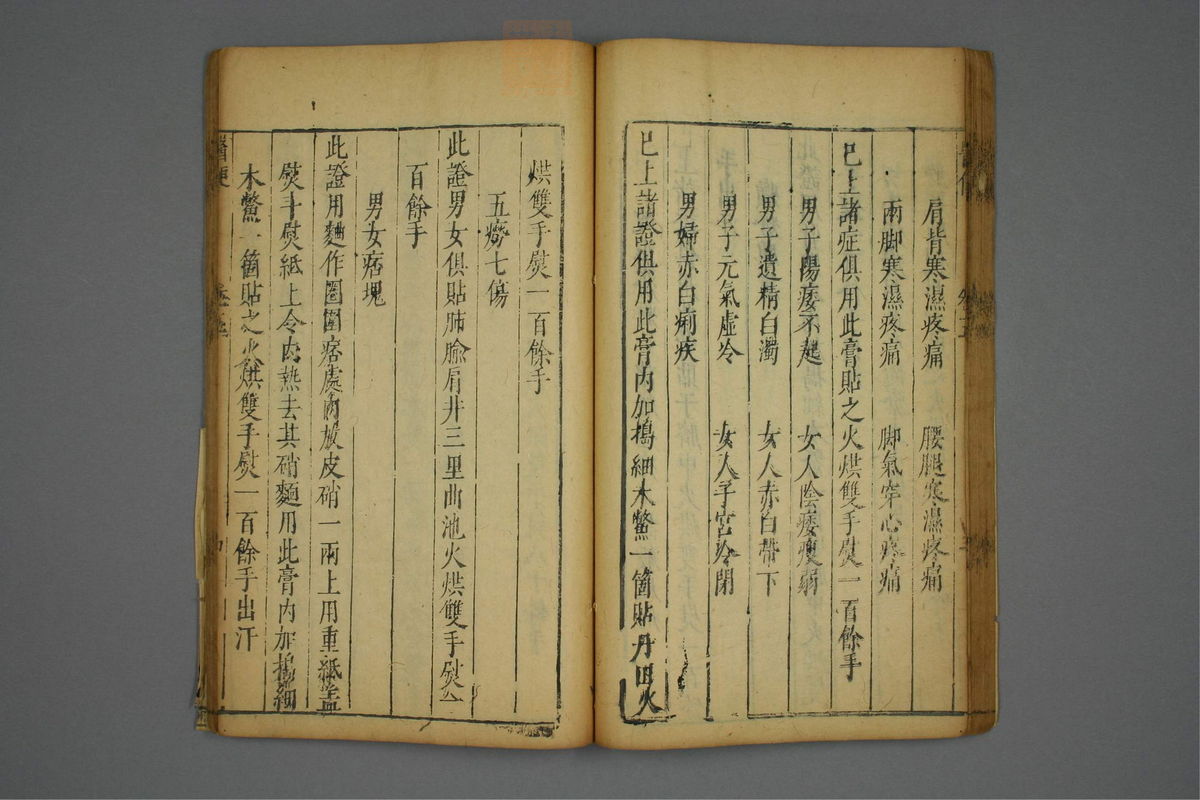 肩背寒濕疼痛 腰腿寒濕疼痛
兩脚寒濕疼痛 脚氣穿心疼痛
已上諸症俱用此膏貼之火烘雙手熨一百餘手
男子陽痿不起 女人陰痿瘦弱
男子遺精白濁 女人赤白帶下
男子元氣虛冷 女人子宮冷閉
男婦赤白痢疾
已上諸證俱用此膏內加搗細木鱉一箇貼丹田火
烘雙手熨一百餘手
五癆七傷
此證男女俱貼肺腧肩井三里曲池火烘雙手熨一
百餘手
男女痞塊
此證用麵作圈圍痞處內放皮硝一兩上用重紙蓋
熨斗熨紙上令內熱去其硝麵用此膏內加搗細
木鱉一箇貼之火烘雙手熨一百餘手出汗
醫便